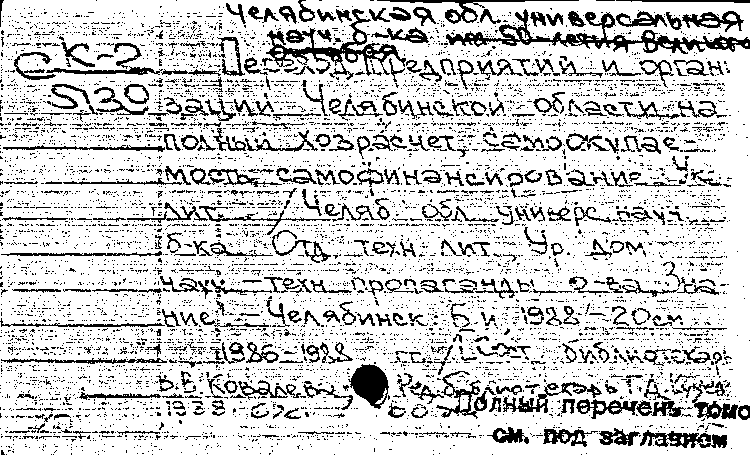 Челябинская обл. универсальная
науч. б-ка им 50-летия Великого
Октября
К-2
5130
Переход предприятий и органи
зации Челябинской области на
полный хозрасчет, самоокупае-
мость, самофинансирование Ук.
лит. / Челяб обл универс науч
б-ка Отд техн. лит, Ур. дом
науч-техн пропаганды о-ва "Зна
ние" - Челябинск Б и, 1988 - 20см
1986-1988 гг. / Сост библиотекарь
В.Е. Ковалева Ред. библиотекарь Т.Д.
1988. 
Полный перечень томо
см. под заглавием